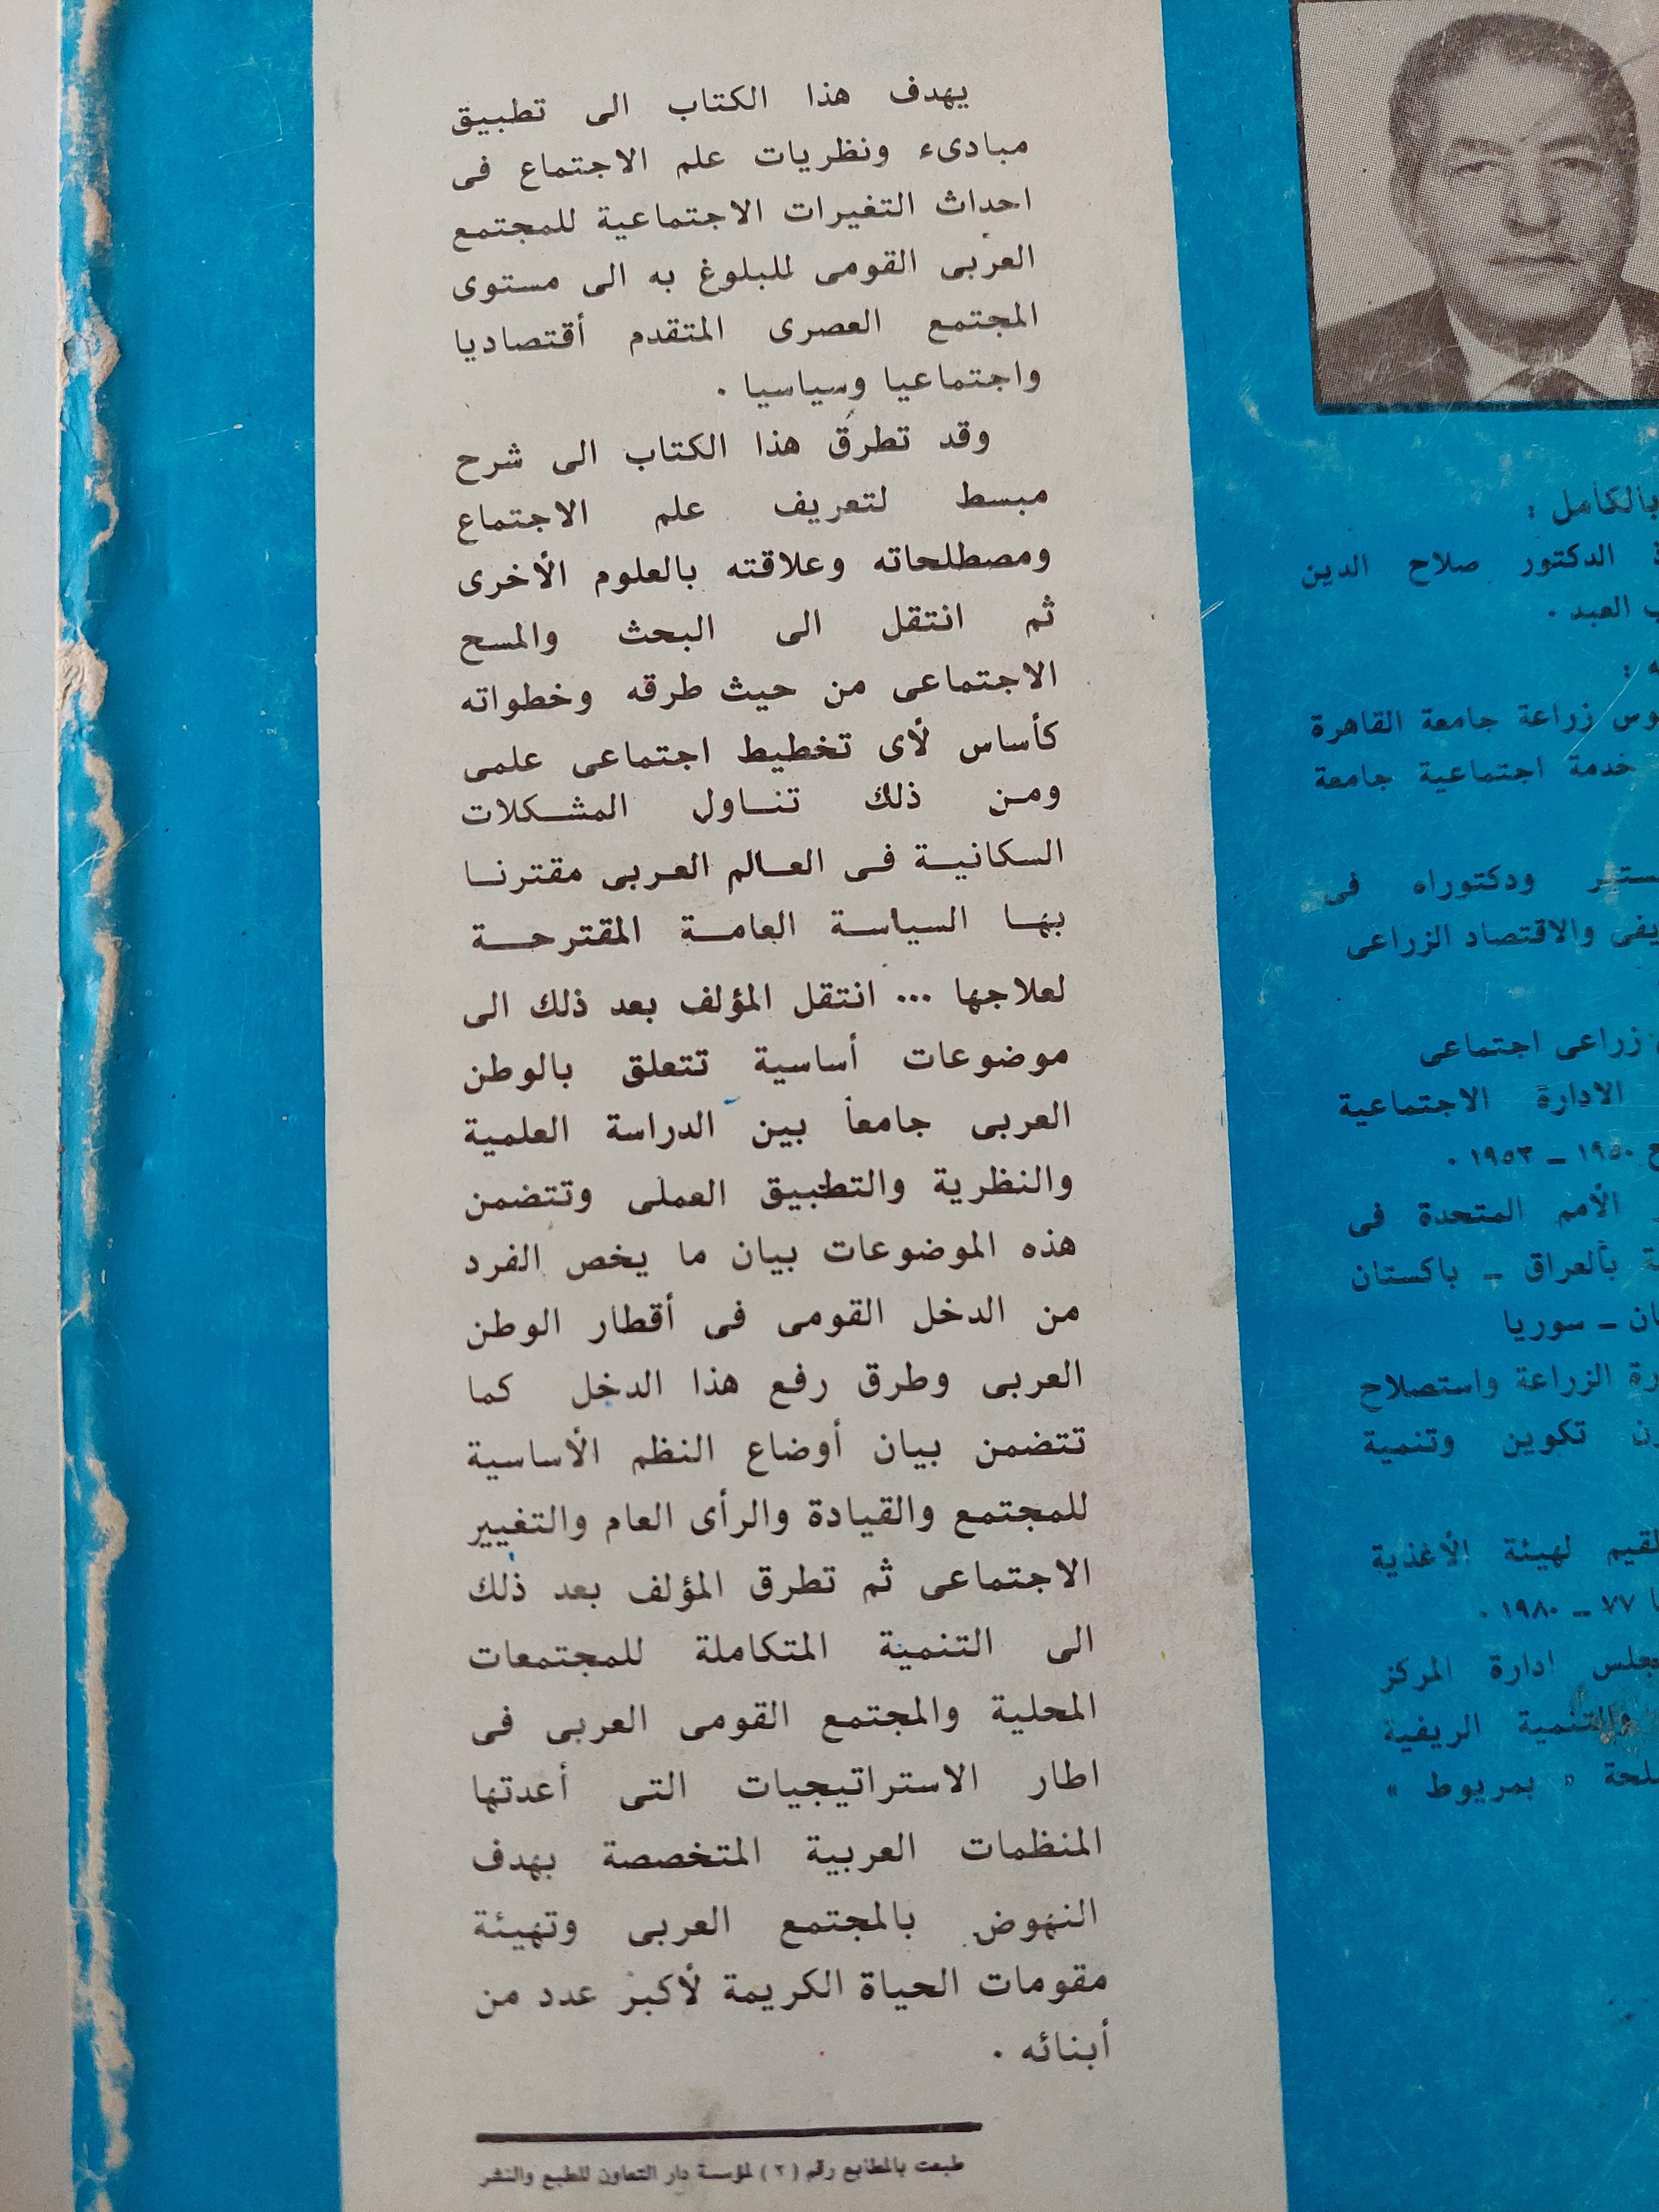 يهدف هذا الكتاب الى تطبيق
مبادىء ونظريات علم الاجتماع فى
احداث التغيرات الاجتماعية للمجتمع
العربى القومى للبلوغ به الى مستوى
المجتمع العصرى المتقدم أقتصاديا
واجتماعيا وسياسيا .
وقد تطرق هذا الكتاب الى شرح
مبسط لتعريف علم الاجتماع
ومصطلحاته وعلاقته بالعلوم الأخرى
ثم انتقل الى البحث والمسح
الاجتماعى من حيث طرقه وخطواته
كأساس لأى تخطيط اجتماعى علمى
ومن ذلك تناول المشكلات
السكانية فى العالم العربى مقترنا
بها السياسة العامة المقترحة
لعلاجها ... انتقل المؤلف بعد ذلك الى
موضوعات أساسية تتعلق بالوطن
العربى جامعا بين الدراسة العلمية
والنظرية والتطبيق العملى وتتضمن
هذه الموضوعات بيان ما يخص الفرد
من الدخل القومى فى أقطار الوطن
العربى وطرق رفع هذا الدخل كما
تتضمن بيان أوضاع النظم الأساسية
للمجتمع والقيادة والرأى العام والتغيير
الاجتماعى ثم تطرق المؤلف بعد ذلك
الى التنمية المتكاملة للمجتمعات
المحلية والمجتمع القومى العربى فى
اطار الاستراتيجيات التى أعدتها
المنظمات العربية المتخصصة بهدف
النهوض بالمجتمع العربى وتهيئة
مقومات الحياة الكريمة لأكبر عدد من
أبنائه .
طبعت بالمطابع رقم ( ٢ ) لمؤسسة دار التعاون للطبع والنشر
بالكامل :
الدكتور صلاح الدين
العبد .
زراعة جامعة القاهرة
خدمة اجتماعية جامعة
ودكتوراه فى
والاقتصاد الزراعى
زراعى اجتماعى
الادارة الاجتماعية
١٩٥٠ ـ ١٩٥٣ .
الأمم المتحدة فى
بالعراق ـ باكستان
ـ سوريا
الزراعة واستصلاح
تكوين وتنمية
لهيئة الأغذية
٧٧ ـ ١٩٨٠ .
ادارة المركز
والتنمية الريفية
" بمريوط "